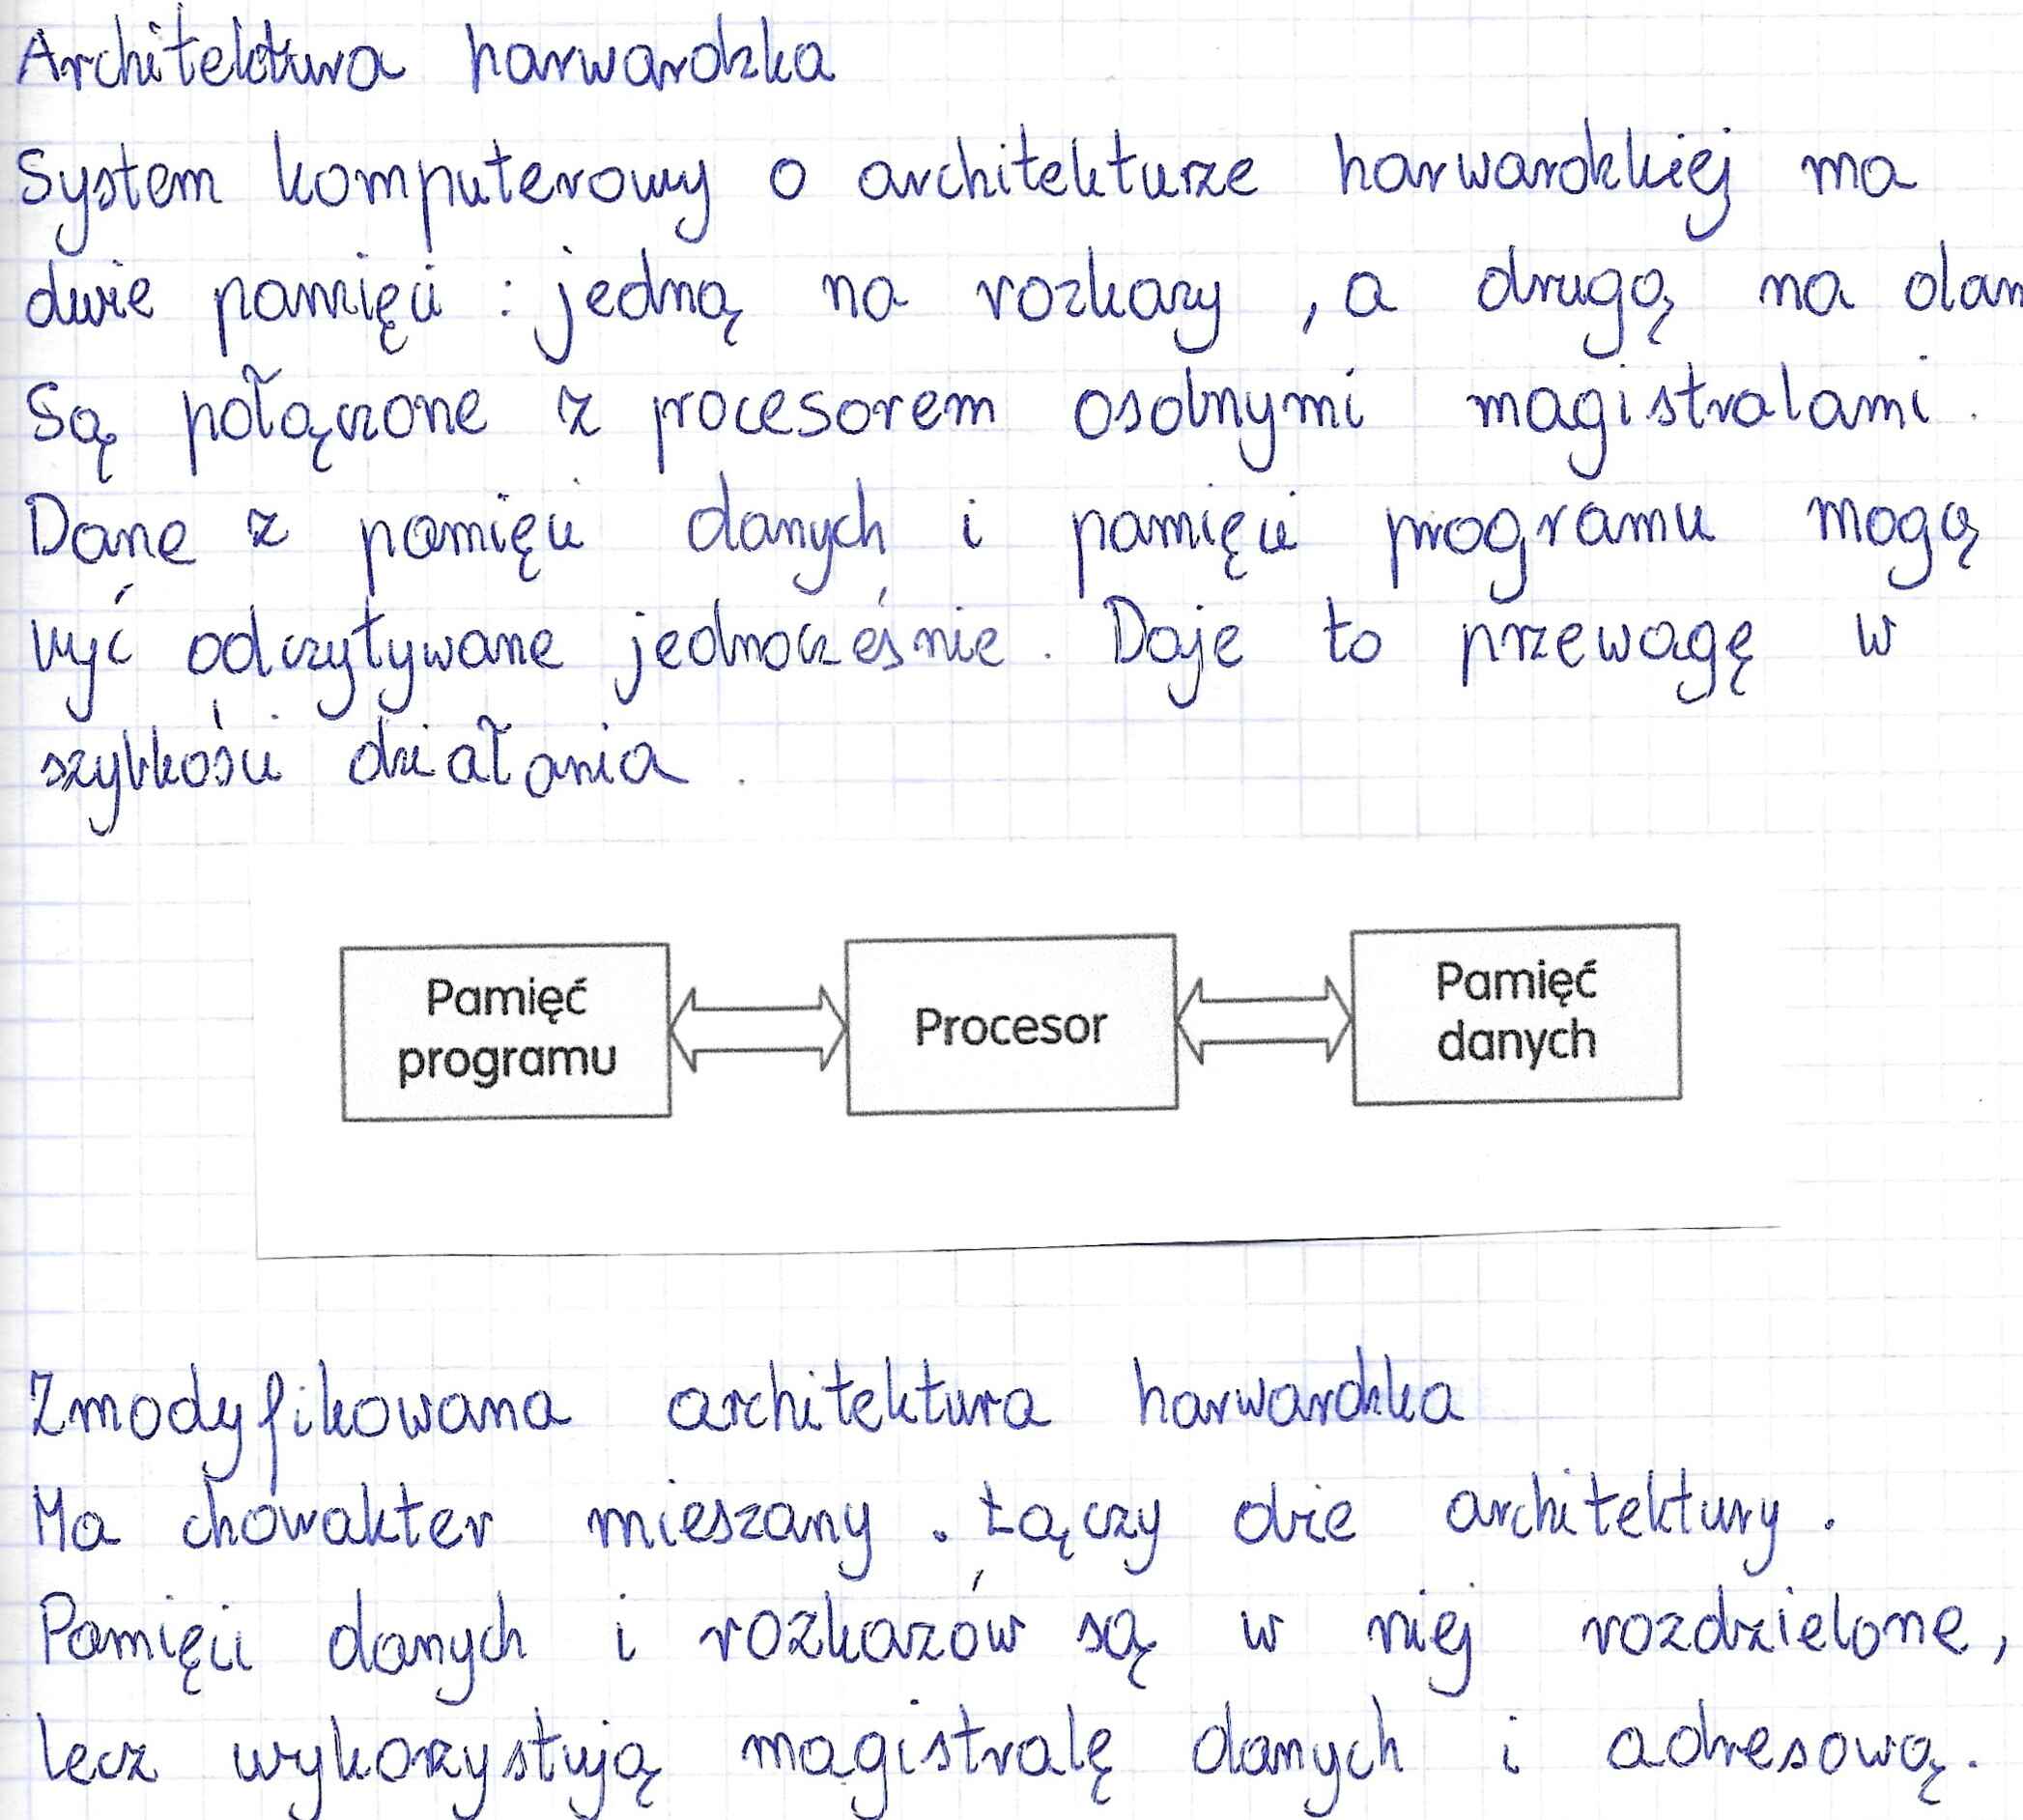 Architektura harwardzka
System komputerowy o architekturze harwardzkiej ma
dwie pamięci : jedną na rozkazy , a drugą na dan
Są połączone z procesorem osobnymi magistralami .
Dane z pamięci danych i pamięci programu mogą
być odczytywane jednocześnie . Daje to przewagę w
szybkości działania .
Pamięć programu
Procesor
Pamięć danych
Zmodyfikowana architektura harwardzka
Ma charakter mieszany . Łączy dzie architektury .
Pamięci danych i rozkazów są w niej rozdzielone,
lecz wykorzystują magistralę danych i adresową.